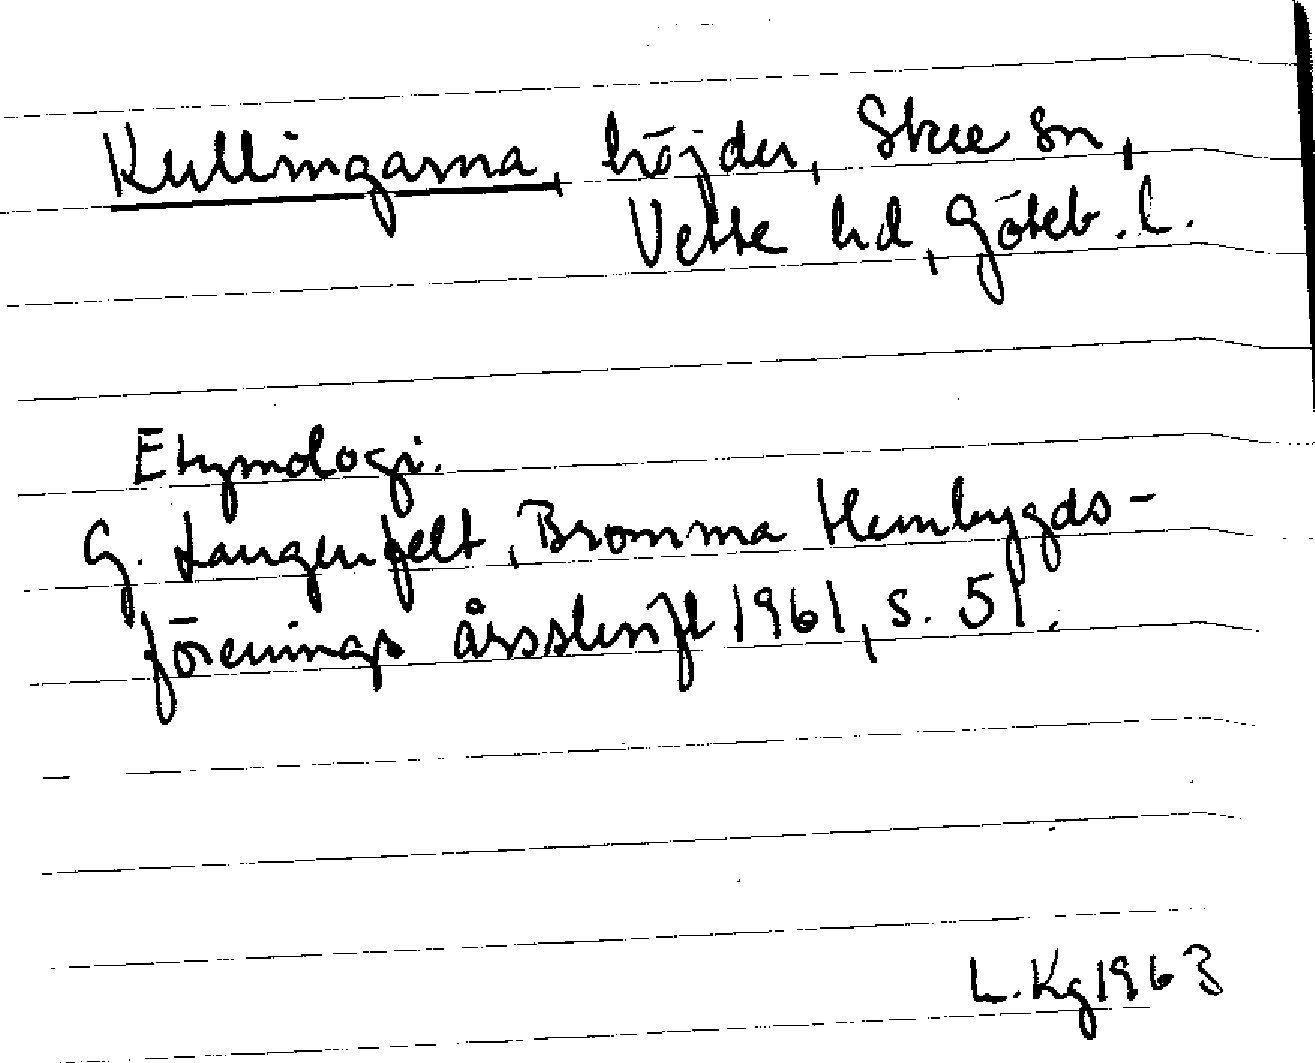 Kullingarna, höjder, Skee sn,
Vette hd, Göteb. l.
Etymologi.
G. Langenfelt, Bromma Hembygds-
förenings årsskrift 1961, s. 51.
L. Kg 1963